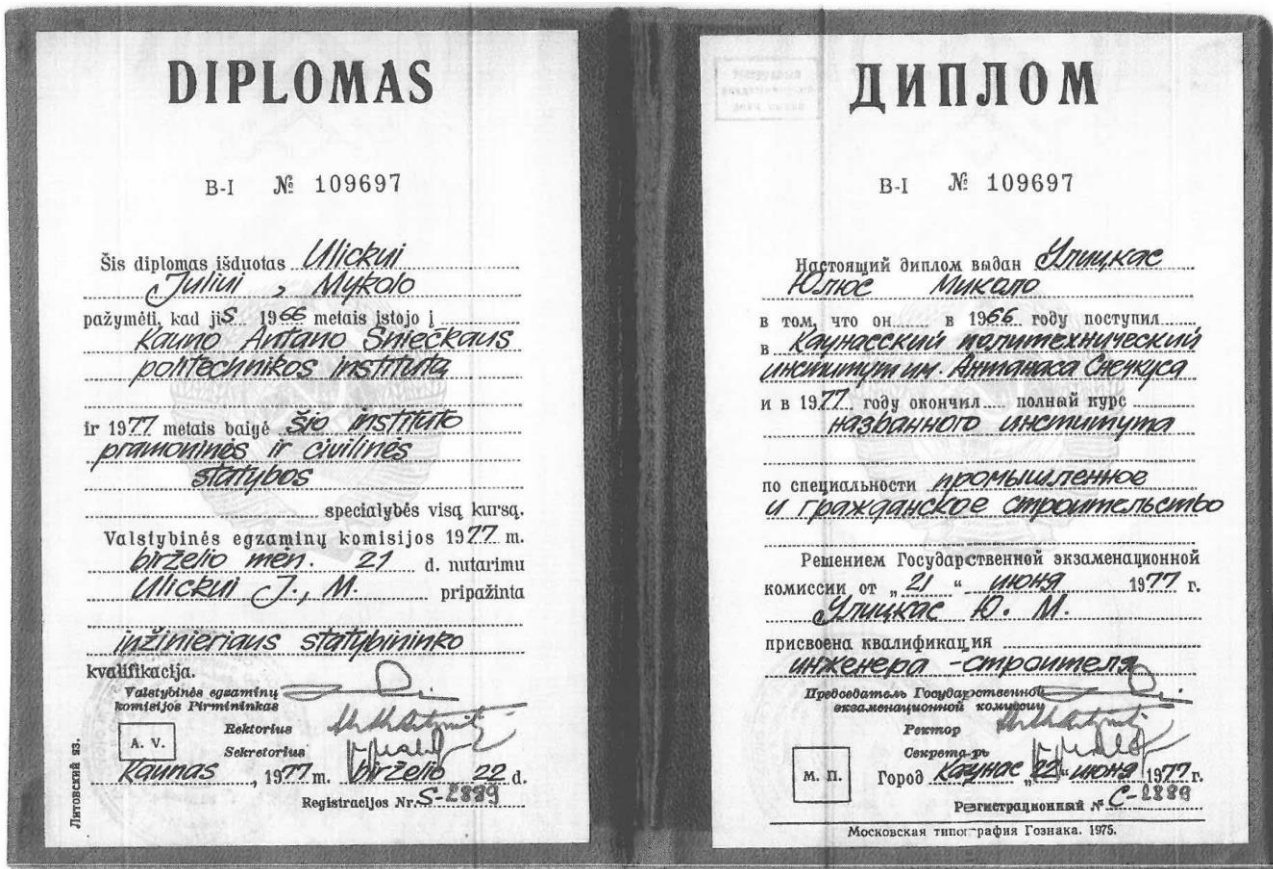 DIPLOMAS
B-I № 109697
Šis diplomas išduotas Ulickui
Juliui, Mykolo
pažymėti, kad jis 1966 metais įstojo į
Kauno Antano Sniečkaus
politechnikos institutą
ir 1977 metais baigė šio instituto
pramoninės ir civilinės
statybos
specialybės visą kursą.
Valstybinės egzaminų komisijos 1977 m.
birželio mėn. 21 d. nutarimu
Ulickui J., M. pripažinta
inžinieriaus statybininko
kvalifikacija.
Valstybinės egzaminų
komisijos Pirmininkas
Rektorius
A. V.
Sekretorius
Kaunas, 1977 m. birželio 22 d.
Registracijos Nr. S-2889
Литовский яз.
ДИПЛОМ
B-I № 109697
Настоящий диплом выдан Улицкас
Юлюс Микало
в том, что он в 1966 году поступил
в Каунасский политехнический
институт им. Антанаса Снечкуса
и в 1977 году окончил полный курс
названного института
по специальности промышленное
и гражданское строительство
Решением Государственной экзаменационной
комиссии от „21“ июня 1977 г.
Улицкас Ю. М.
присвоена квалификация
инженера-строителя
Председатель Государственной
экзаменационной комиссии
Ректор
Секретарь
М. П.
Город Каунас „22“ июня 1977 г.
Регистрационный № С-2889
Московская типография Гознака. 1975.